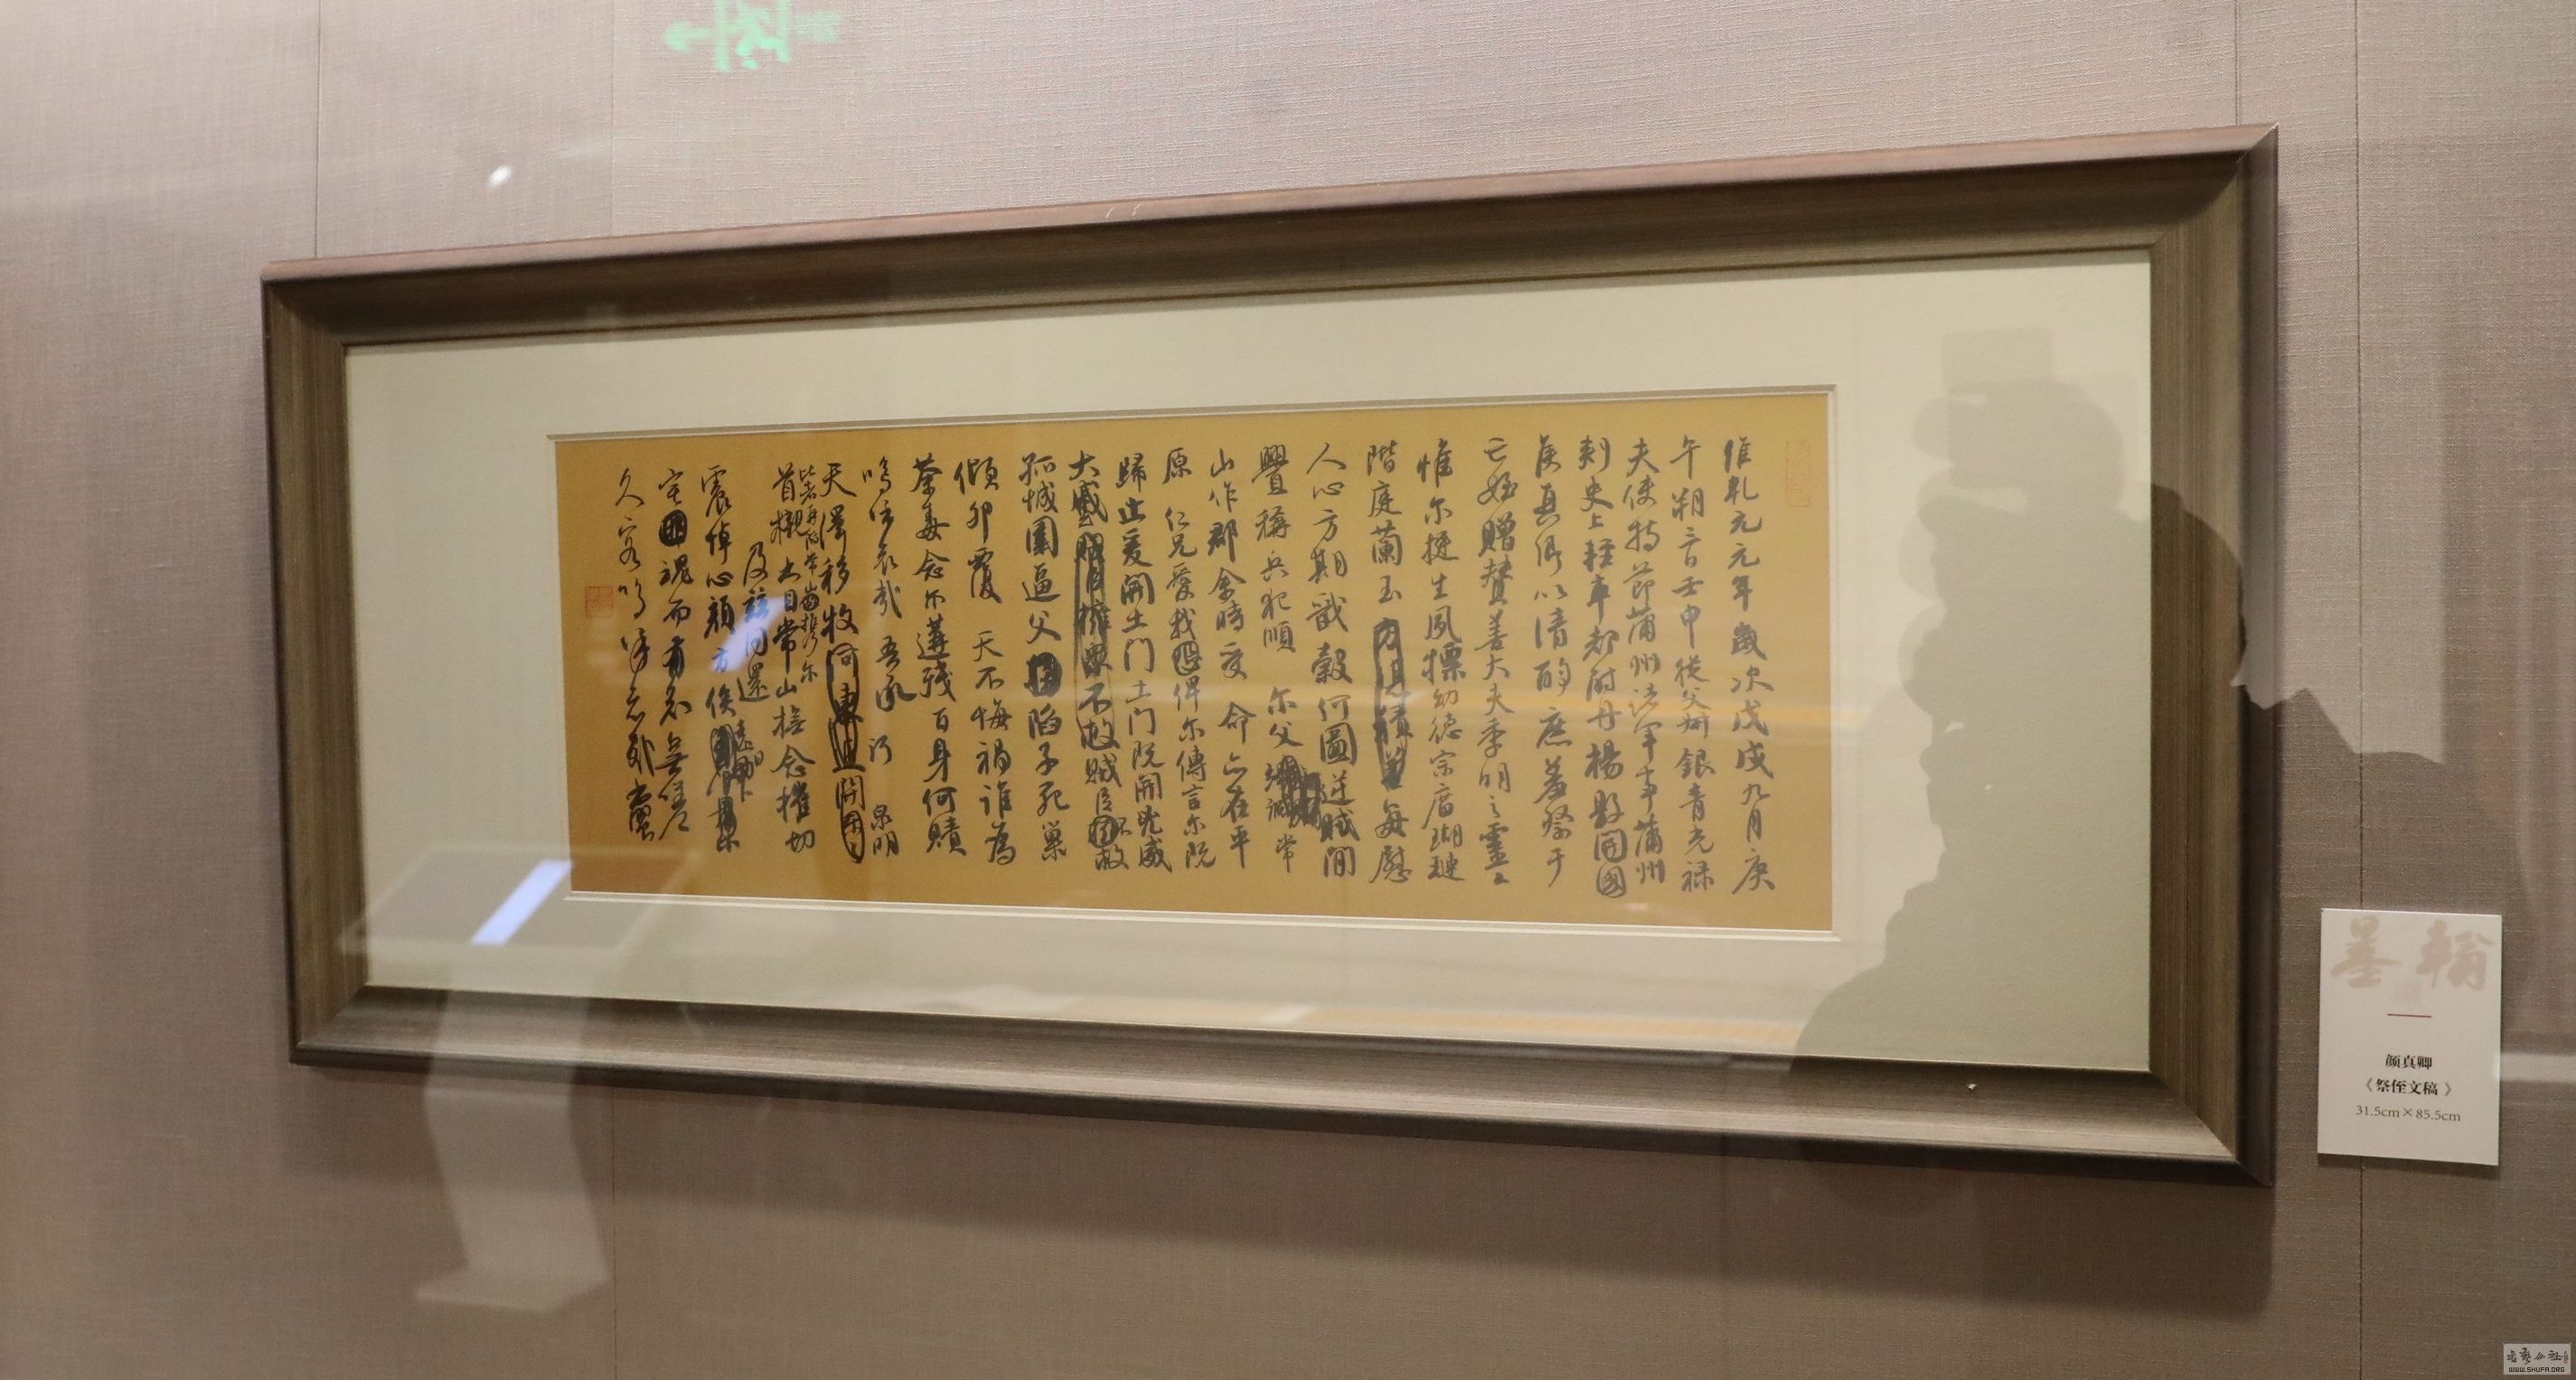 維乾元元年歲次戊戌九月庚
午朔三日壬申從父銀青光禄
夫使持節蒲州諸軍事蒲州
刺史上輕車都尉丹楊縣開國
侯真卿以清酌庶羞祭于
亡姪贈贊善大夫季明之靈
惟尔挺生夙標幼德宗廟瑚璉
階庭蘭玉每慰
人心方期戩穀何圖逆賊閒
釁稱兵犯順 尔父竭誠常
山作郡余時受 命亦在平
原 仁兄愛我俾尔傳言尔既
歸止爰開土門土門既開兇威
大蹙賊臣不救
孤城圍逼父陷子死巢
傾卵覆 天不悔禍誰為
荼毒念尔遘殘百身何贖
嗚呼哀哉 吾承
天澤移牧河東近 泉明
比者再陷常山携尔
首櫬及兹同還 亦自常山撫念摧切
震悼心顔方俟遠日
宅魂而有知無嗟
久客嗚呼哀哉尚饗
翰墨
颜真卿
《祭侄文稿》
31.5cm×85.5cm
WWW.SHUFA.ORG